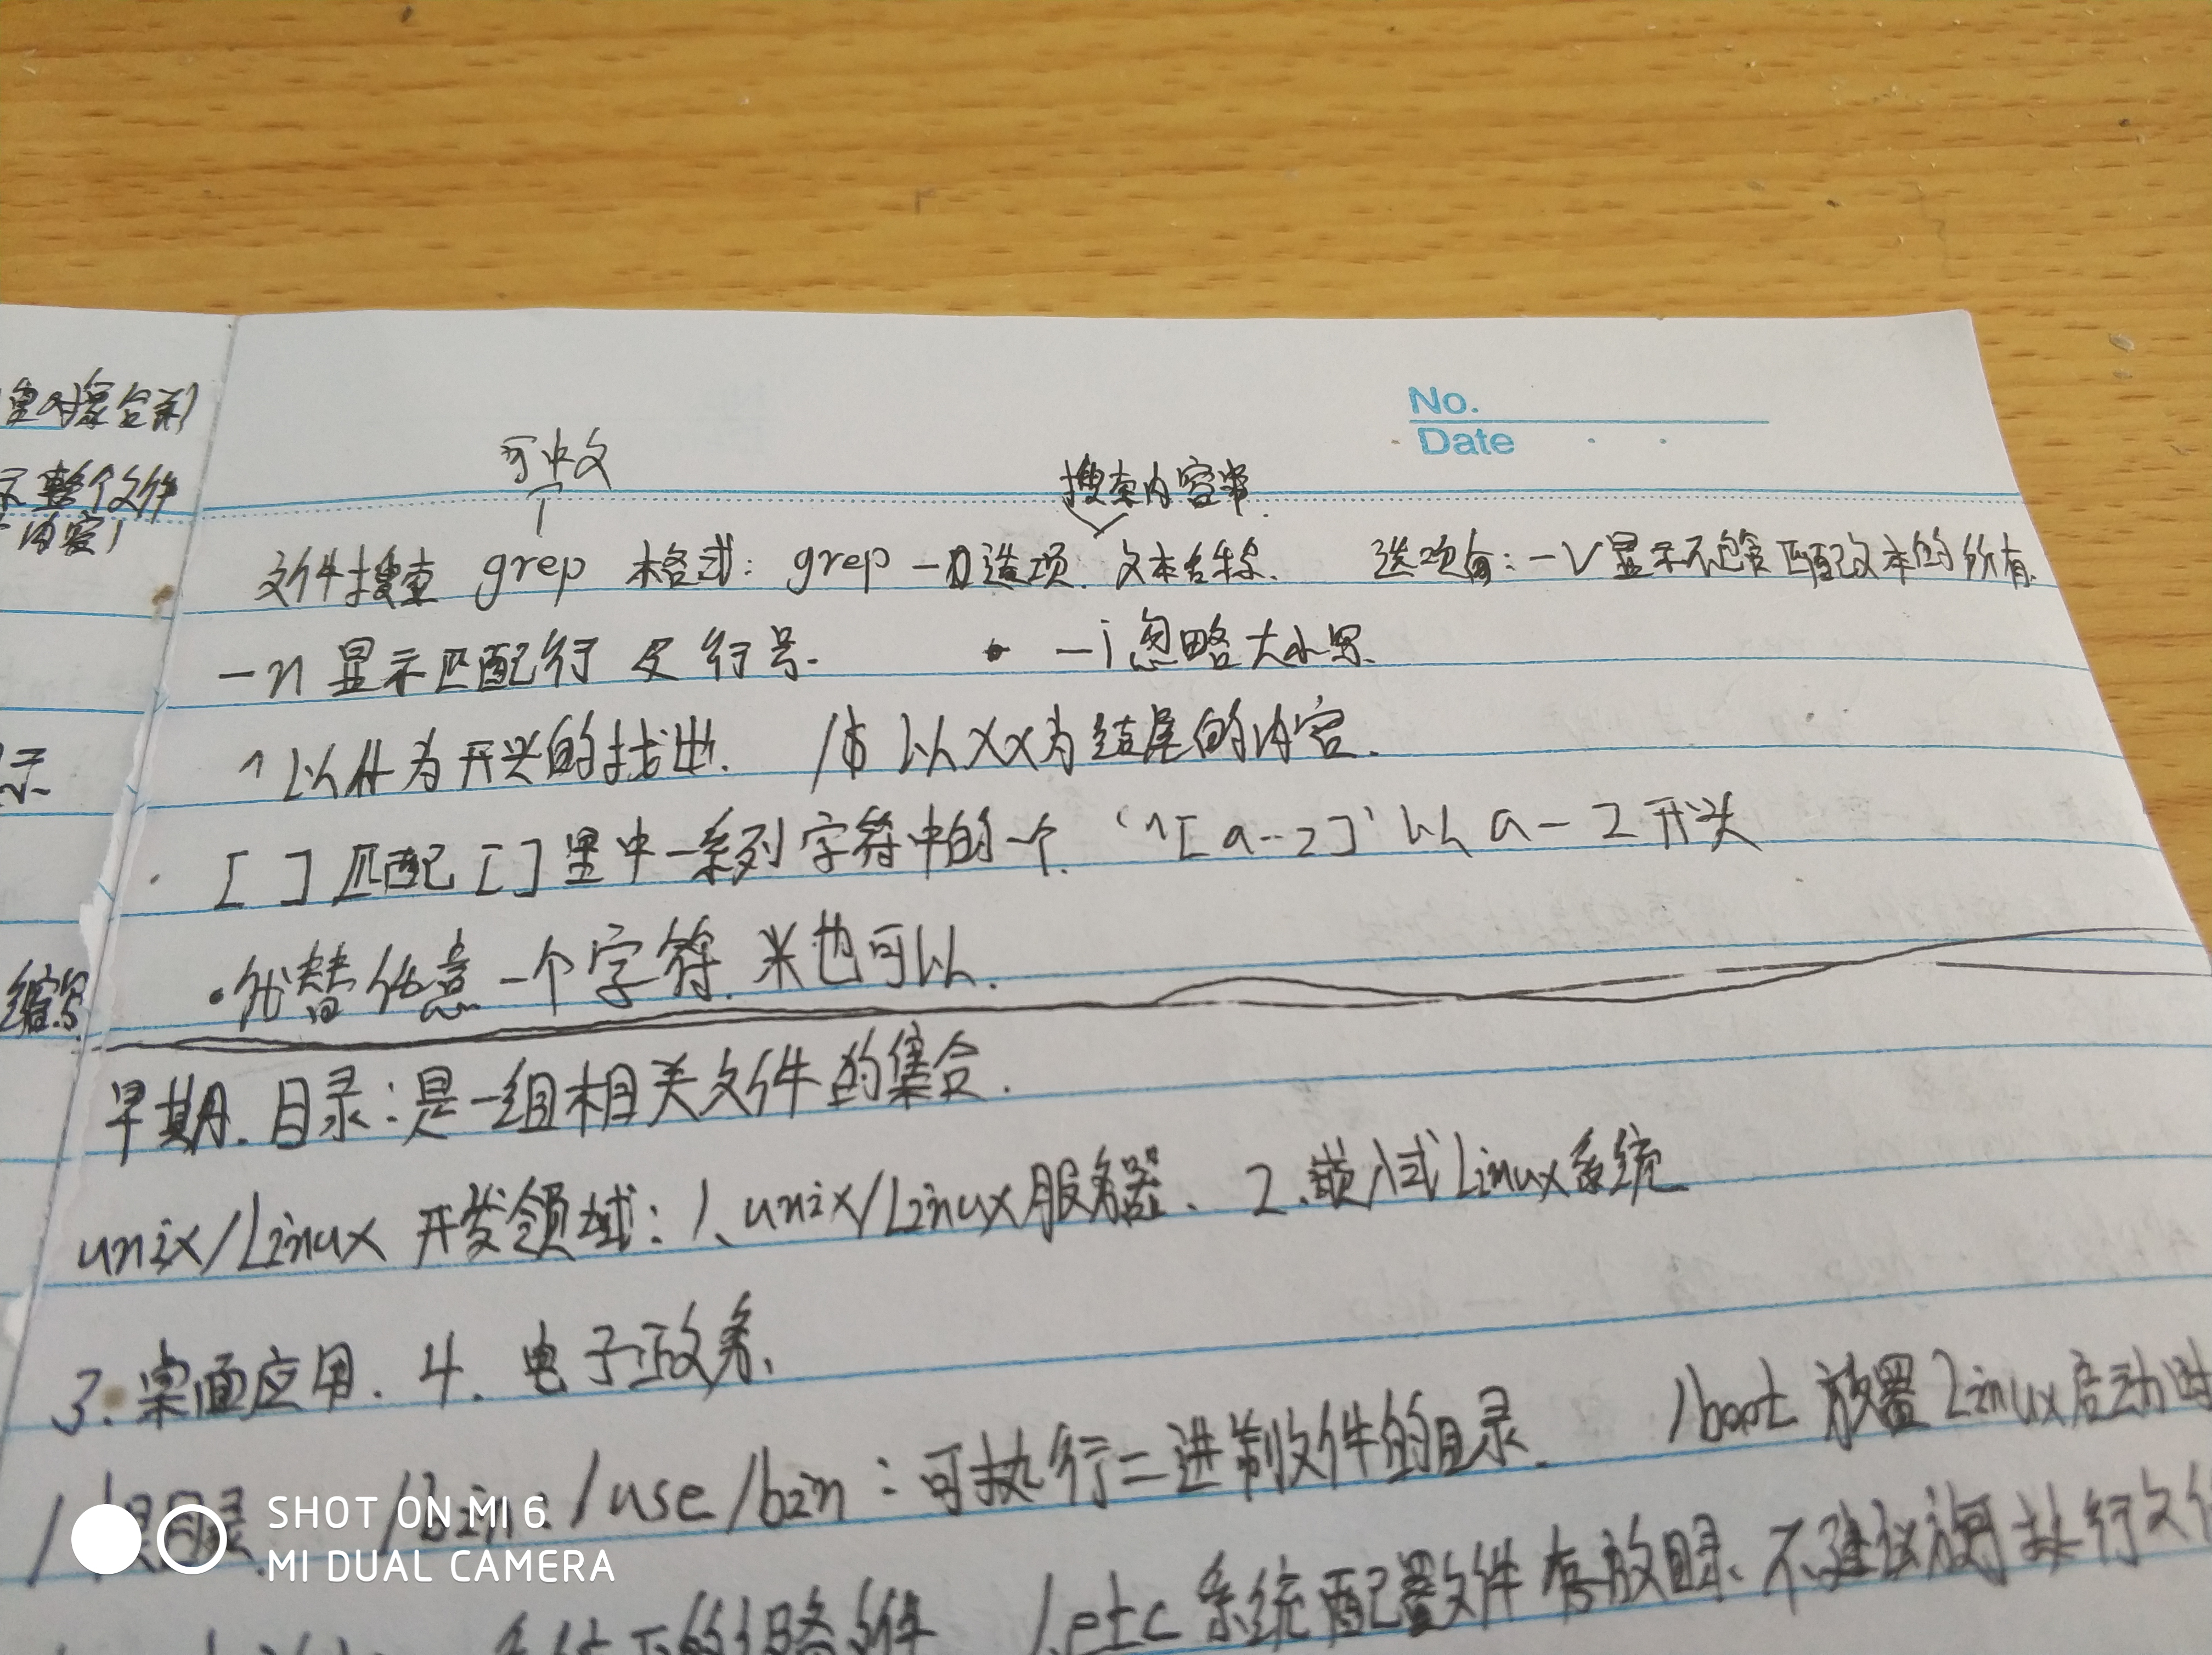 No.
Date
可中文
搜索内容串.
文件搜索 grep 格式: grep -选项 文本名称. 选项有: -v 显示不包含匹配文本的所有
-n 显示匹配行及行号. -i 忽略大小写.
^ 以 为开头的找出. $ 以XX为结尾的内容.
[ ] 匹配[ ]里中一系列字符中的一个. '^[a-z]' 以 a-z 开头
• 代替任意一个字符. *也可以.
早期. 目录: 是一组相关文件的集合.
unix/Linux 开发领域: 1、unix/Linux服务器、 2.嵌入式Linux系统
3. 桌面应用. 4. 电子政务、
/ 根目录. /bin: /use/bin: 可执行二进制文件的目录. /boot 放置Linux启动时
/etc 系统配置文件存放目录、不建议 执行文件
里对象合并)
示整个文件
内容)
示
缩写
SHOT ON MI 6
MI DUAL CAMERA